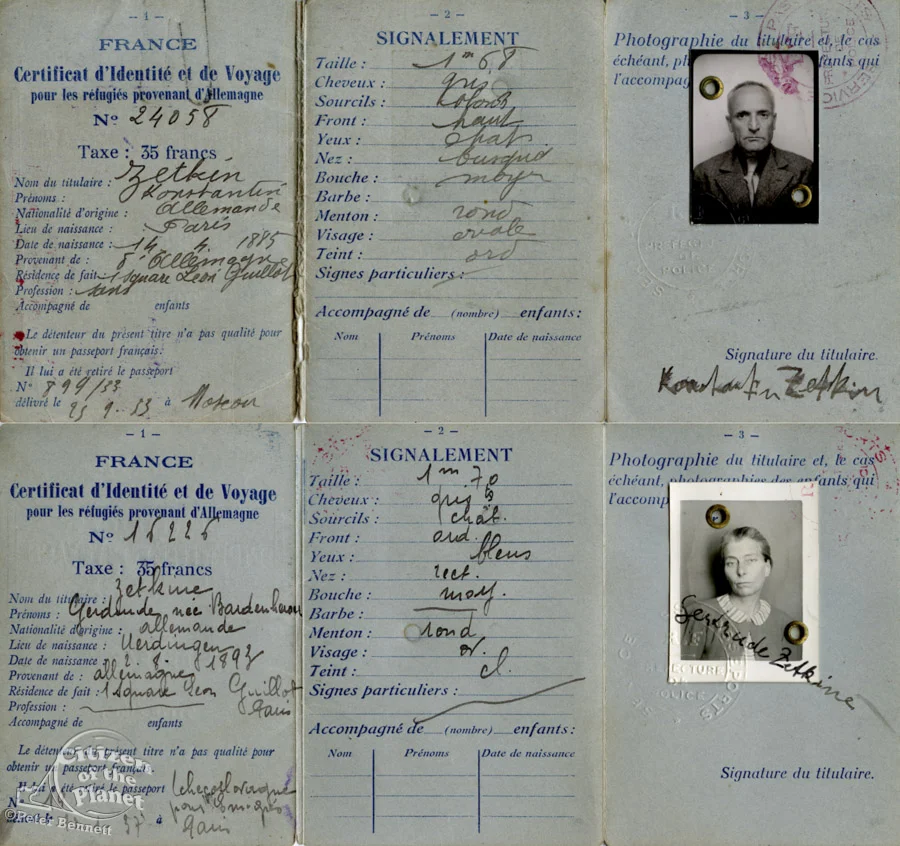 – 1 –
FRANCE
Certificat d'Identité et de Voyage
pour les réfugiés provenant d'Allemagne
N° 24058
Taxe : 35 francs
Nom du titulaire : Zetkin
Prénoms : Konstantin
Nationalité d'origine : Allemande
Lieu de naissance : Paris
Date de naissance : 14 4. 1885
Provenant de : d'Allemagne
Résidence de fait : 1 Square Leon Guillot
Profession : sans
Accompagné de enfants
Le détenteur du présent titre n'a pas qualité pour
obtenir un passeport français.
Il lui a été retiré le passeport
N° 899/33
délivré le 25 9-33 à Moscou
– 2 –
SIGNALEMENT
Taille : 1m 68
Cheveux : gris
Sourcils :
Front : haut
Yeux : chat
Nez : busqué
Bouche : moyen
Barbe :
Menton : rond
Visage : ovale
Teint : ord
Signes particuliers :
Accompagné de (nombre) enfants :
Nom Prénoms Date de naissance
– 3 –
Photographie du titulaire et, le cas
échéant, enfants qui
l'accompag
PREFECTURE
DE
POLICE
Signature du titulaire.
Konstantin Zetkin
– 1 –
FRANCE
Certificat d'Identité et de Voyage
pour les réfugiés provenant d'Allemagne
N° 16226
Taxe : 35 francs
Nom du titulaire : Zetkine
Prénoms : née
Nationalité d'origine : allemande
Lieu de naissance : Uerdingen
Date de naissance 2. 8. 1893
Provenant de : allemagne
Résidence de fait : 1 square Leon Guillot
Paris
Profession :
Accompagné de enfants
Le détenteur du présent titre n'a pas qualité pour
obtenir un passeport français.
Il lui a été retiré le passeport tchecoslovaque
N° pour Emigrés
37 à Paris
– 2 –
SIGNALEMENT
Taille : 1m 70
Cheveux : gris
Sourcils : chât.
Front : ord.
Yeux : bleus
Nez : rect.
Bouche : moy.
Barbe :
Menton : rond
Visage : ov.
Teint : cl.
Signes particuliers :
Accompagné de (nombre) enfants :
Nom Prénoms Date de naissance
– 3 –
Photographie du titulaire et, le cas
échéant, photographies des enfants qui
l'accomp
Gertrude Zetkine
Signature du titulaire.
Citizen
of the
Planet
©Peter Bennett